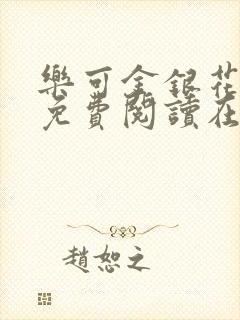 樂可金銀花
免費閱讀在
趙恕之